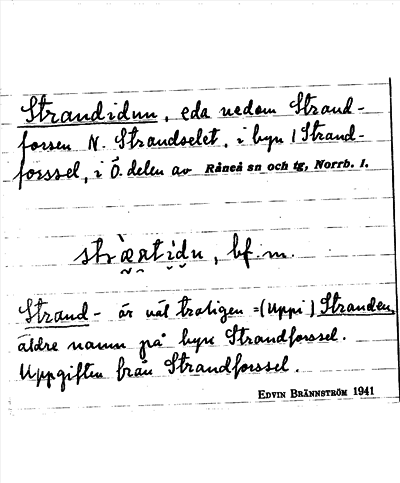 Strandidun, eda nedom Strand-
forsen N. Strandselet, i byn 1 Strand-
forssel, i Ö. delen av Råneå sn och tg, Norrb. l.
bf. m.
Strand- är väl troligen =(Uppi) Stranden,
äldre namn på byn Strandforssel.
Uppgiften från Strandforssel.
EDVIN BRÄNNSTRÖM 1941